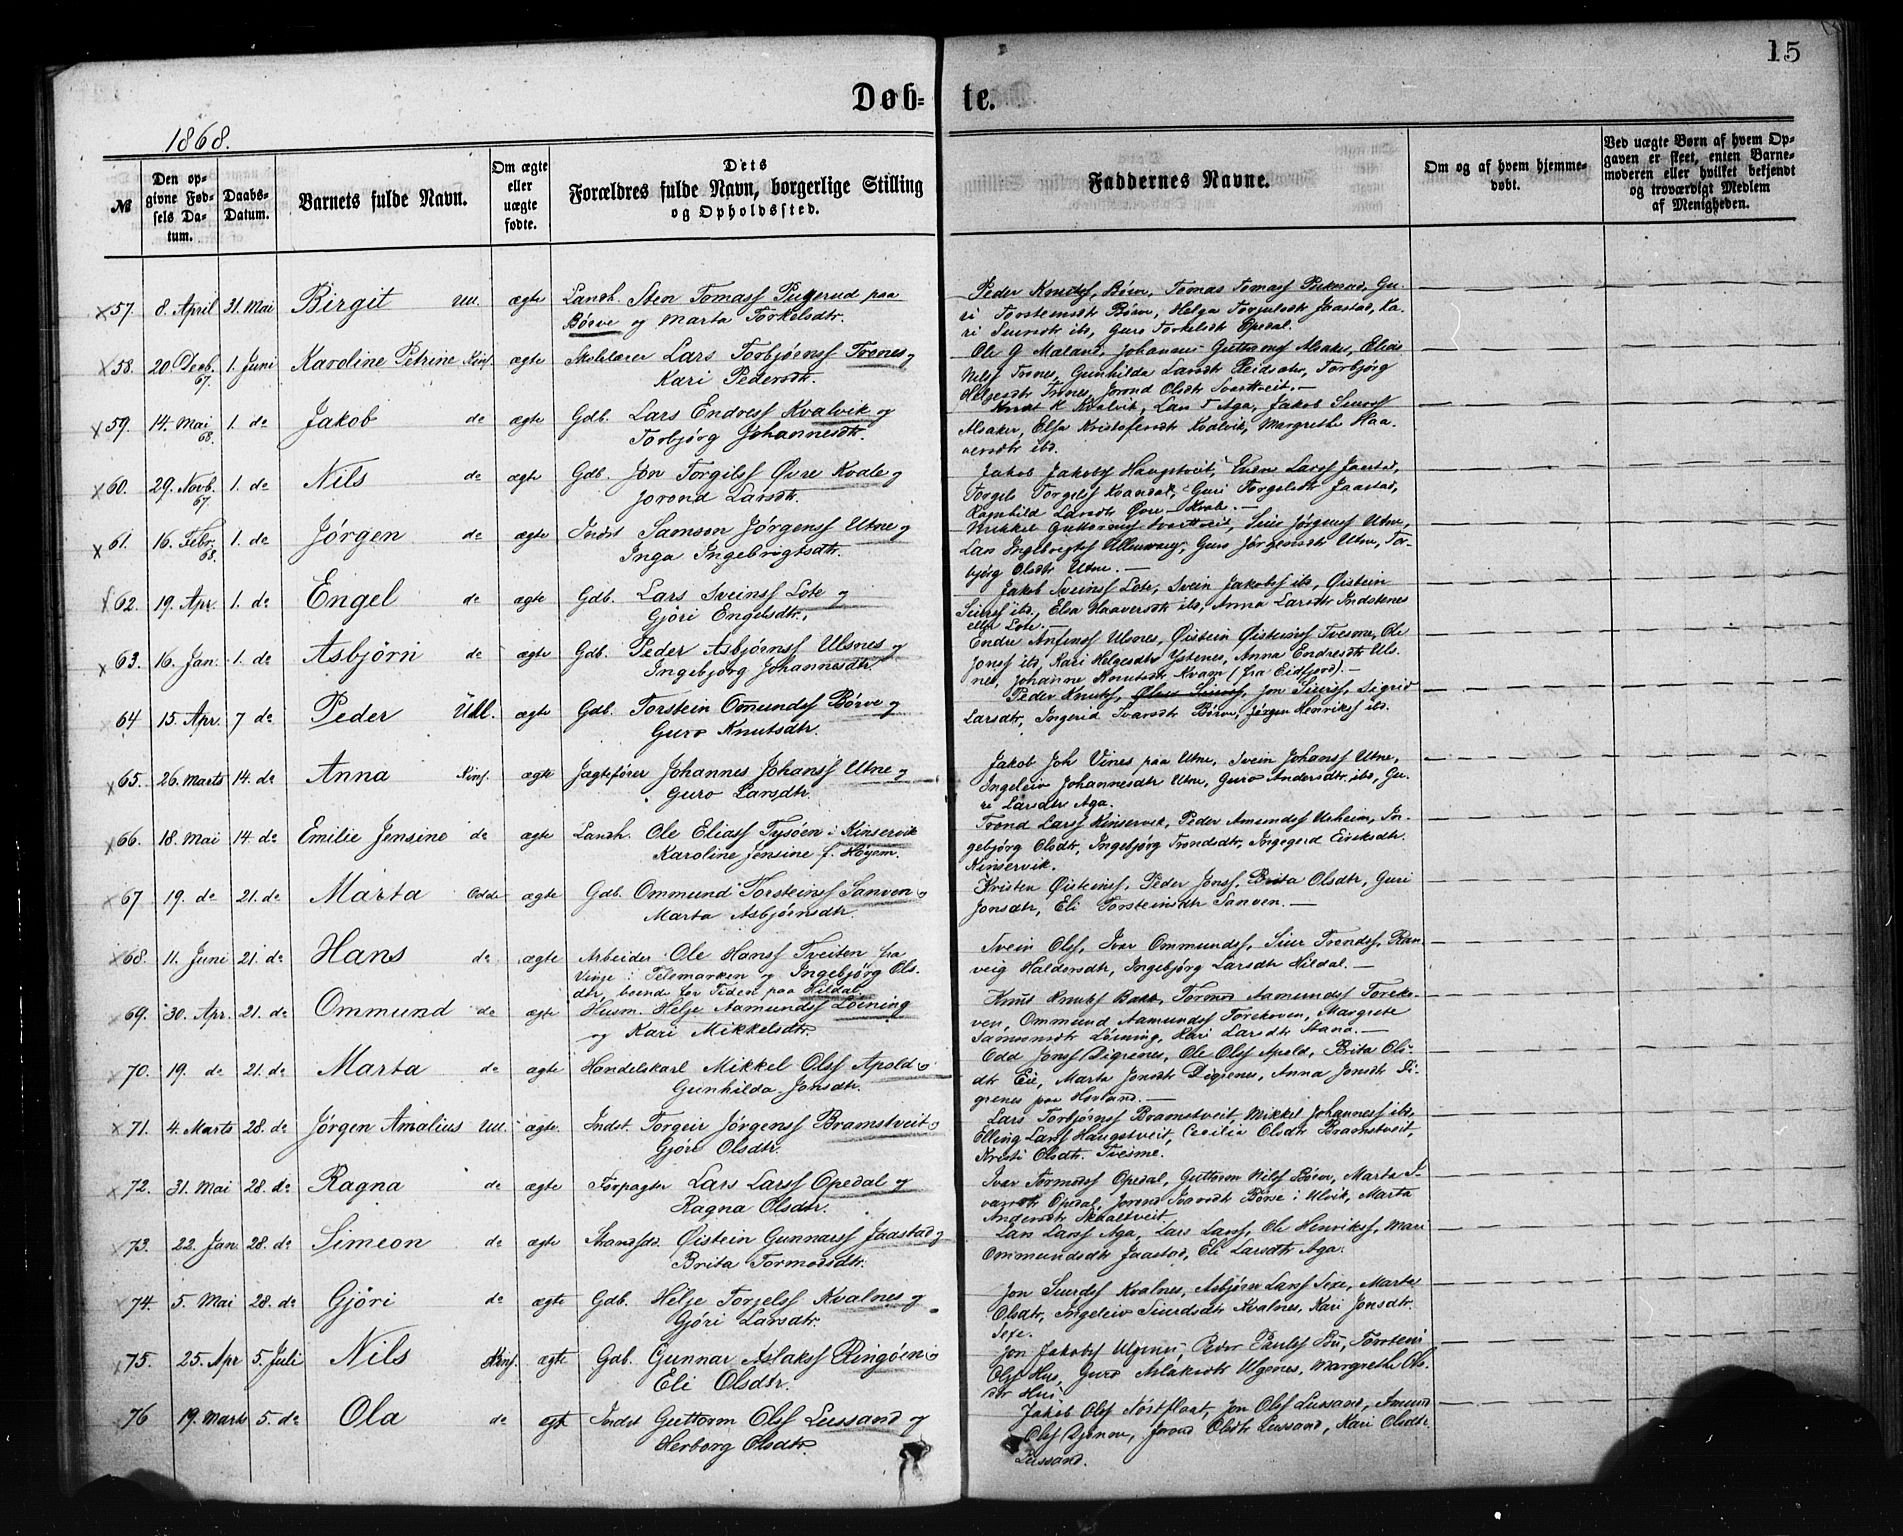 15
Døb- te.
1868.
№
Den op-
givne Fød-
sels Da-
tum.
Daabs-
Datum.
Barnets fulde Navn.
Om ægte
eller
uægte
fødte.
Dets
Forældres fulde Navn, borgerlige Stilling
og Opholdssted.
Faddernes Navne.
Om og af hvem hjemme-
døbt.
Ved uægte Børn af hvem Op-
gaven er skeet, enten Barne-
moderen eller hvilket bekjendt
og troværdigt Medlem
af Menigheden.
57. 8. April 31. Mai Birgit Ull. ægte Landh. Sten Tomass Pugerud paa
Børve og Marta Torkelsdtr.
Peder Knuts Børve, Tomas Tomass Pukerud, Gu-
ri Torsteinsdtr Børve, Helga Torjulsdtr Jaastad, Ka-
ri Siursdtr ibs, Guro Torkelsdtr Opedal.
58. 20. Decb. 67. 1. Juni Karoline Petrine Kins. ægte Skolelærer Lars Torbjørnss Trones og
Kari Pedersdtr.
Ole G Maland, Johannes Guttormss Alsaker, Elias
Nilss Trones, Gunhilda Larsdtr Reidsæter, Torbjørg
Helgesdtr Trones, Jorond Olsdtr Svartveit. —
59. 14. Mai 68. 1. do Jakob do ægte Gdb. Lars Endress Kvalvik og
Torbjørg Johannesdtr.
Knut K Kvalvik, Lars T Aga, Jakob Siurss
Alsaker, Elsa Kristofersdtr Kvalvik, Margrethe Haa-
versdtr ibs.
60. 29. Novb. 67. 1. do Nils do ægte Gdb. Jon Torgilss Øvre Kvale og
Jorond Larsdtr.
Jakob Jakobss Haugstveit, Svein Larss Jaastad,
Torgils Torgilss Kvandal, Guri Torgilsdtr Jaastad,
Ragnhild Larsdtr Øvre-Kvale. —
61. 16. Febr. 68. 1. do Jørgen do ægte Indst Samson Jørgenss Utne og
Inga Ingebrigtsdtr.
Mikkel Guttormss Svartveit, Siur Jørgenss Utne,
Lars Ingebrigtss Ullensvang, Guro Jørgensdtr Utne, Tor-
bjørg Olsdtr Utne. —
62. 19. Apr. 1. do Engel do ægte Gdb. Lars Sveinss Lote og
Gjøri Engelsdtr.
Jakob Sveinss Lote, Svein Jakobss ibs, Øistein
Siurss ibs, Elsa Haaversdtr ibs, Anna Larsdtr Indstenes
eller Lote. —
63. 16. Jan. 1. do Asbjørn do ægte Gdb. Peder Asbjørnss Ulsnes og
Ingebjørg Johannesdtr.
Endre Anfinss Ulsnes, Øistein Øisteinss Tvesme, Ole
Jonss ibs, Kari Helgesdtr Ystenes, Anna Endresdtr Uls-
nes, Johanne Knutsdtr Kvam (fra Eidfjord). —
64 15. Apr. 7 do Peder Ull. ægte Gdb. Torstein Ommundss Børve og
Guro Knutsdtr.
Peder Knutss, Jon Siurss, Sigrid
Larsdtr, Ingerid Ivarsdtr Børve, Jørgen Henrikss ibs.
65. 26. Marts 14. do Anna Kins. ægte Jægtefører Johannes Johanss Utne og
Guro Larsdtr.
Jakob Joh Vines paa Utne, Svein Johanss Utne,
Ingeleiv Johannesdtr Utne, Guro Andersdtr ibs, Gu-
ri Larsdtr Aga.
66. 18. Mai 14. do Emilie Jensine do ægte Landh. Ole Eliass Tysøen i Kinservik
Karoline Jensine f. Høyem.
Trond Larss Kinservik, Peder Amundss Usheim, In-
gebjørg Olsdtr, Ingebjørg Trondsdtr, Ingegerd Eiriksdtr.
Kinservik.
67 19. do 21. do Marta Odde ægte Gdb. Ommund Torsteinss Sanven og
Marta Asbjørnsdtr.
Kristen Øisteinss, Peder Jonss, Brita Olsdtr, Guri
Jonsdtr, Eli Torsteinsdtr Sanven. —
68. 11. Juni 21. do Hans do ægte Arbeider Ole Hanss Tveiten fra
Vinje i Tilemarken og Ingebjørg Ols-
dtr, boende for Tiden paa Hildal
Svein Olss, Ivar Ommundss, Siur Trondss, Ran-
veig Haldorsdtr, Ingebjørg Larsdtr Hildal. —
69. 30. Apr. 21. do Ommund do ægte Husm. Helje Aamundss Løining
og Kari Mikkelsdtr.
Knut Knutss Bakk, Tormod Aamundss Toreko-
ven, Ommund Aamundss Torekoven, Margrete
Samsonsdtr Løining, Kari Larsdtr Stana. —
70. 19. do 21. do Marta do ægte Handelskarl Mikkel Olss Apold og
Gunhilda Jonsdtr.
Odd Jonss Digrenes, Ole Olss Apold, Brita Ols-
dtr Eie, Marta Jonsdtr Digrenes, Anna Jonsdtr Di-
grenes paa Hovland. —
71. 4. Marts 28. do Jørgen Amalius Ull. ægte Indst. Torgeir Jørgenss Bramstveit og
Gjøri Olsdtr.
Lars Torbjørnss Bramstveit, Mikkel Johanness ibs,
Elling Larss Haugstveit, Cecilia Olsdtr Bramstveit,
Kristi Olsdtr. Tvesme.
72. 31. Mai 28. do Ragna do ægte Forpagter Lars Larss Opedal og
Ragna Olsdtr.
Ivar Tormodss Opedal, Guttorm Nilss Børve, Marta I-
varsdtr Opedal, Jorond Ivarsdtr Børve i Ulvik, Marta
Andersdtr Skaaltveit.
73. 22. Jan 28. do Simeon do ægte Strandsid. Øistein Gunnarss Jaastad og
Brita Tormodsdtr.
Lars Larss Aga, Lars Larss, Ole Henrikss, Mari
Ommundsdtr Jaastad, Eli Larsdtr Aga.
74. 5. Mai 28. do Gjøri do ægte Gdb. Helje Torjelss Kvalnes og
Gjøri Larsdtr.
Jon Siurdss Kvalnes, Asbjørn Larss Sexe, Marta
Olsdtr, Ingeleiv Siurdsdtr Kvalnes, Kari Jonsdtr.
Sexe.
75. 25. Apr 5. Juli Nils Kins. ægte Gdb. Gunnar Aslakss Ringøen og
Eli Olsdtr.
Jon Jakobss Ulgenes, Peder Paulss Bu, Torstein
Olss Hus, Guro Aslaksdtr Ulgenes, Margrethe Ols-
dtr Hus.
76 19. Marts 5. do Ola do egt Indst Guttorm Olss Lussand og
Herborg Olsdtr
Jakob Olss Nøstflaat, Jon Olss Lussand, Amund
Olss Djønne, Jorond Olsdtr Lussand, Kari Olsdtr
Lussand.